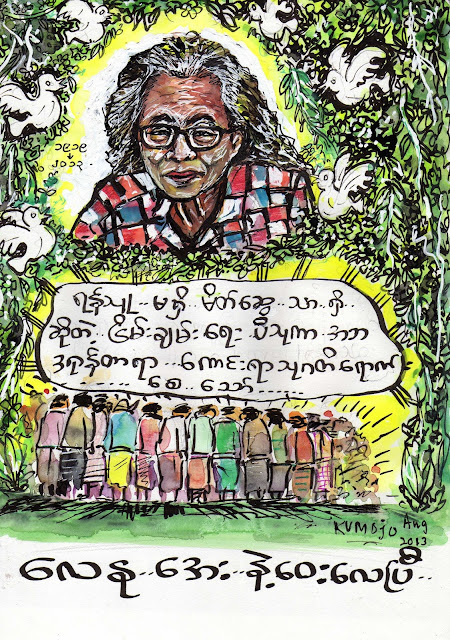 ၁၉၁၉
၂၀၁၃
ရန်သူ..မရှိ..မိတ်ဆွေ..သာ..ရှိ..
ဆိုတဲ့..ငြိမ်းချမ်းရေး ဗိသုကာ..အဘ
ဒဂုန်တာရာ...ကောင်းရာသုဂတိရောက်
စေ..သော်
KUMOJO Aug
2013
လေနု..အေး..နဲ့ဝေးလေပြီ..